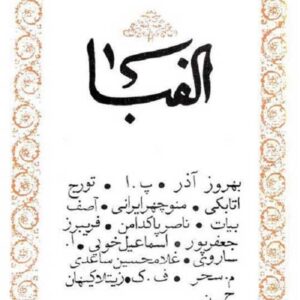 الفبا ۱
بهروز آذر • پ. ا • تورج
اتابکی • منوچهر ایرانی • آصف
بیات • ناصر پاکدامن • فریبرز
جعفرپور • اسماعیل خویی • ا.
ساروی • غلامحسین ساعدی
م. سحر • ف. ک • زیتلا کیهان